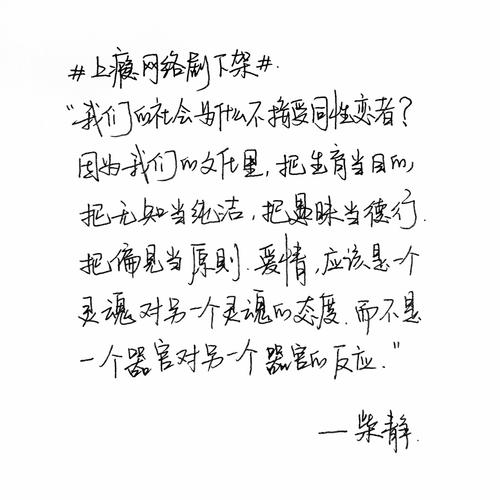 #上瘾网络剧下架#.
"我们的社会为什么不接受同性恋者？
因为我们的文化里，把生育当目的，
把无知当纯洁，把愚昧当德行.
把偏见当原则.爱情，应该是一个
灵魂对另一个灵魂的态度.而不是
一个器官对另一个器官的反应."
—柴静.